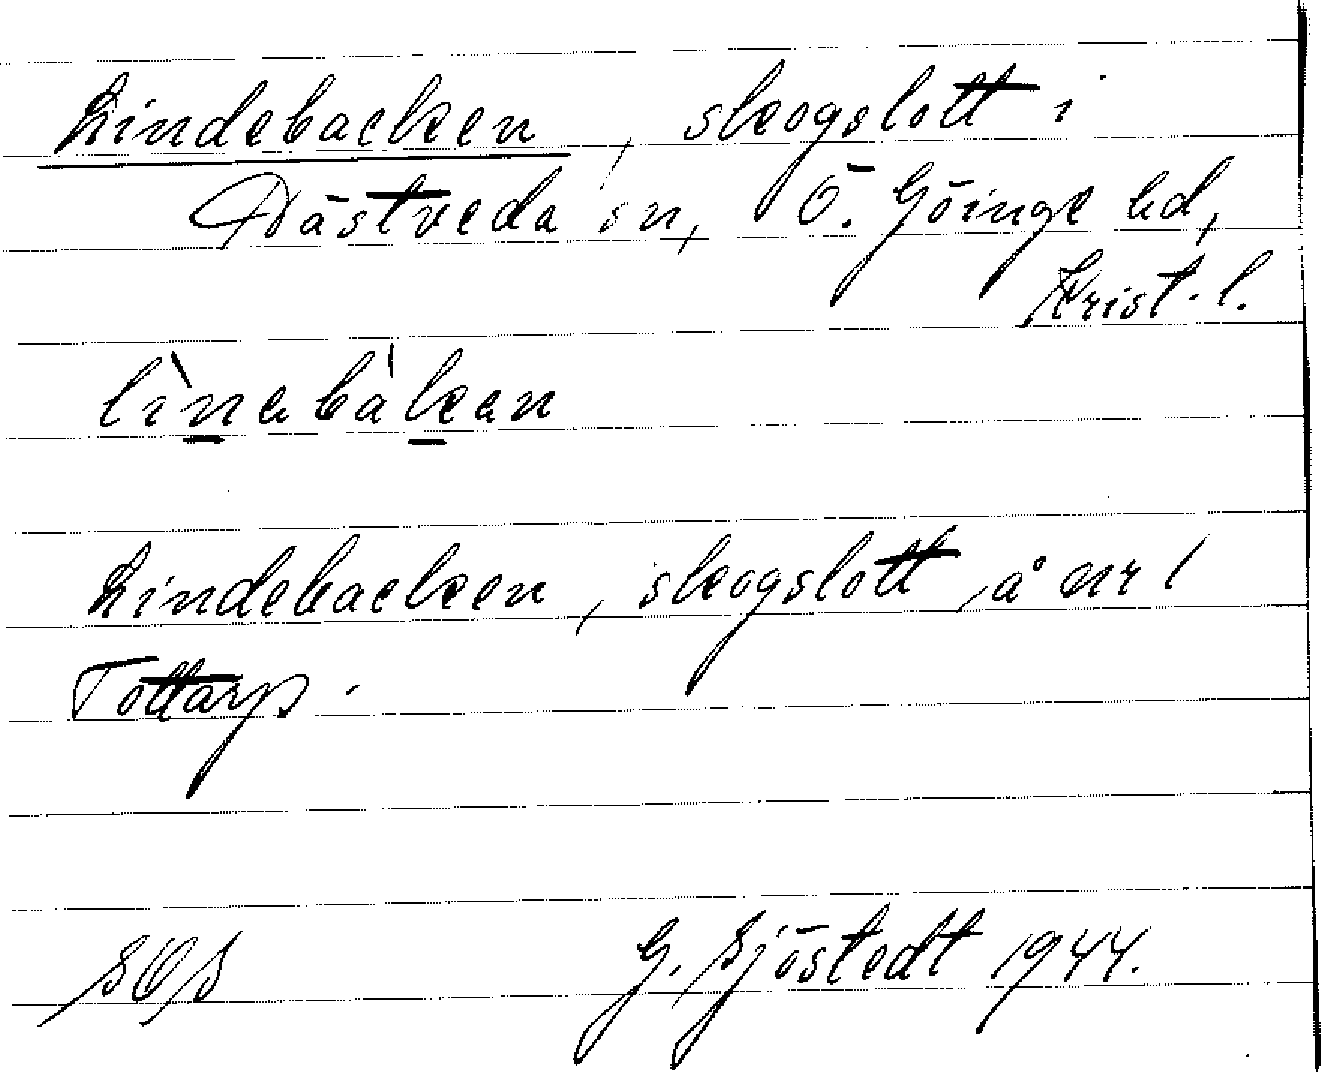 Lindebacken, skogslott i
Västveda sn, Ö. Göinge hd,
Krist. l.
lìnebàken
Lindebacken, skogslott, å nr 1
Tottarp.
G. Sjöstedt 1944.